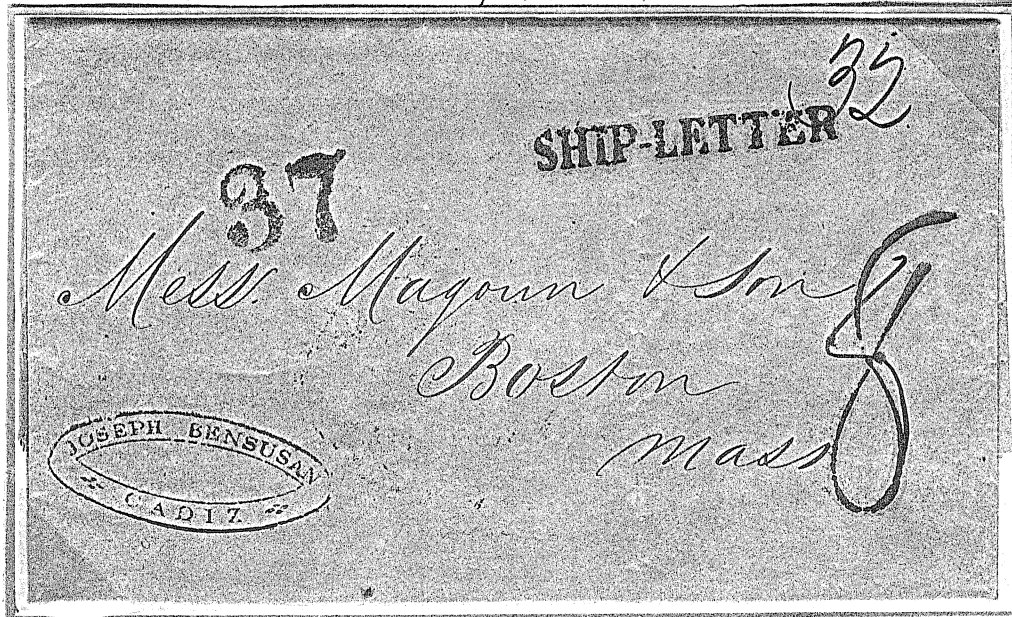 32
SHIP-LETTER
37
Mess. Magoun & Son
8
Boston
Mass
JOSEPH BENSUSAN
CADIZ